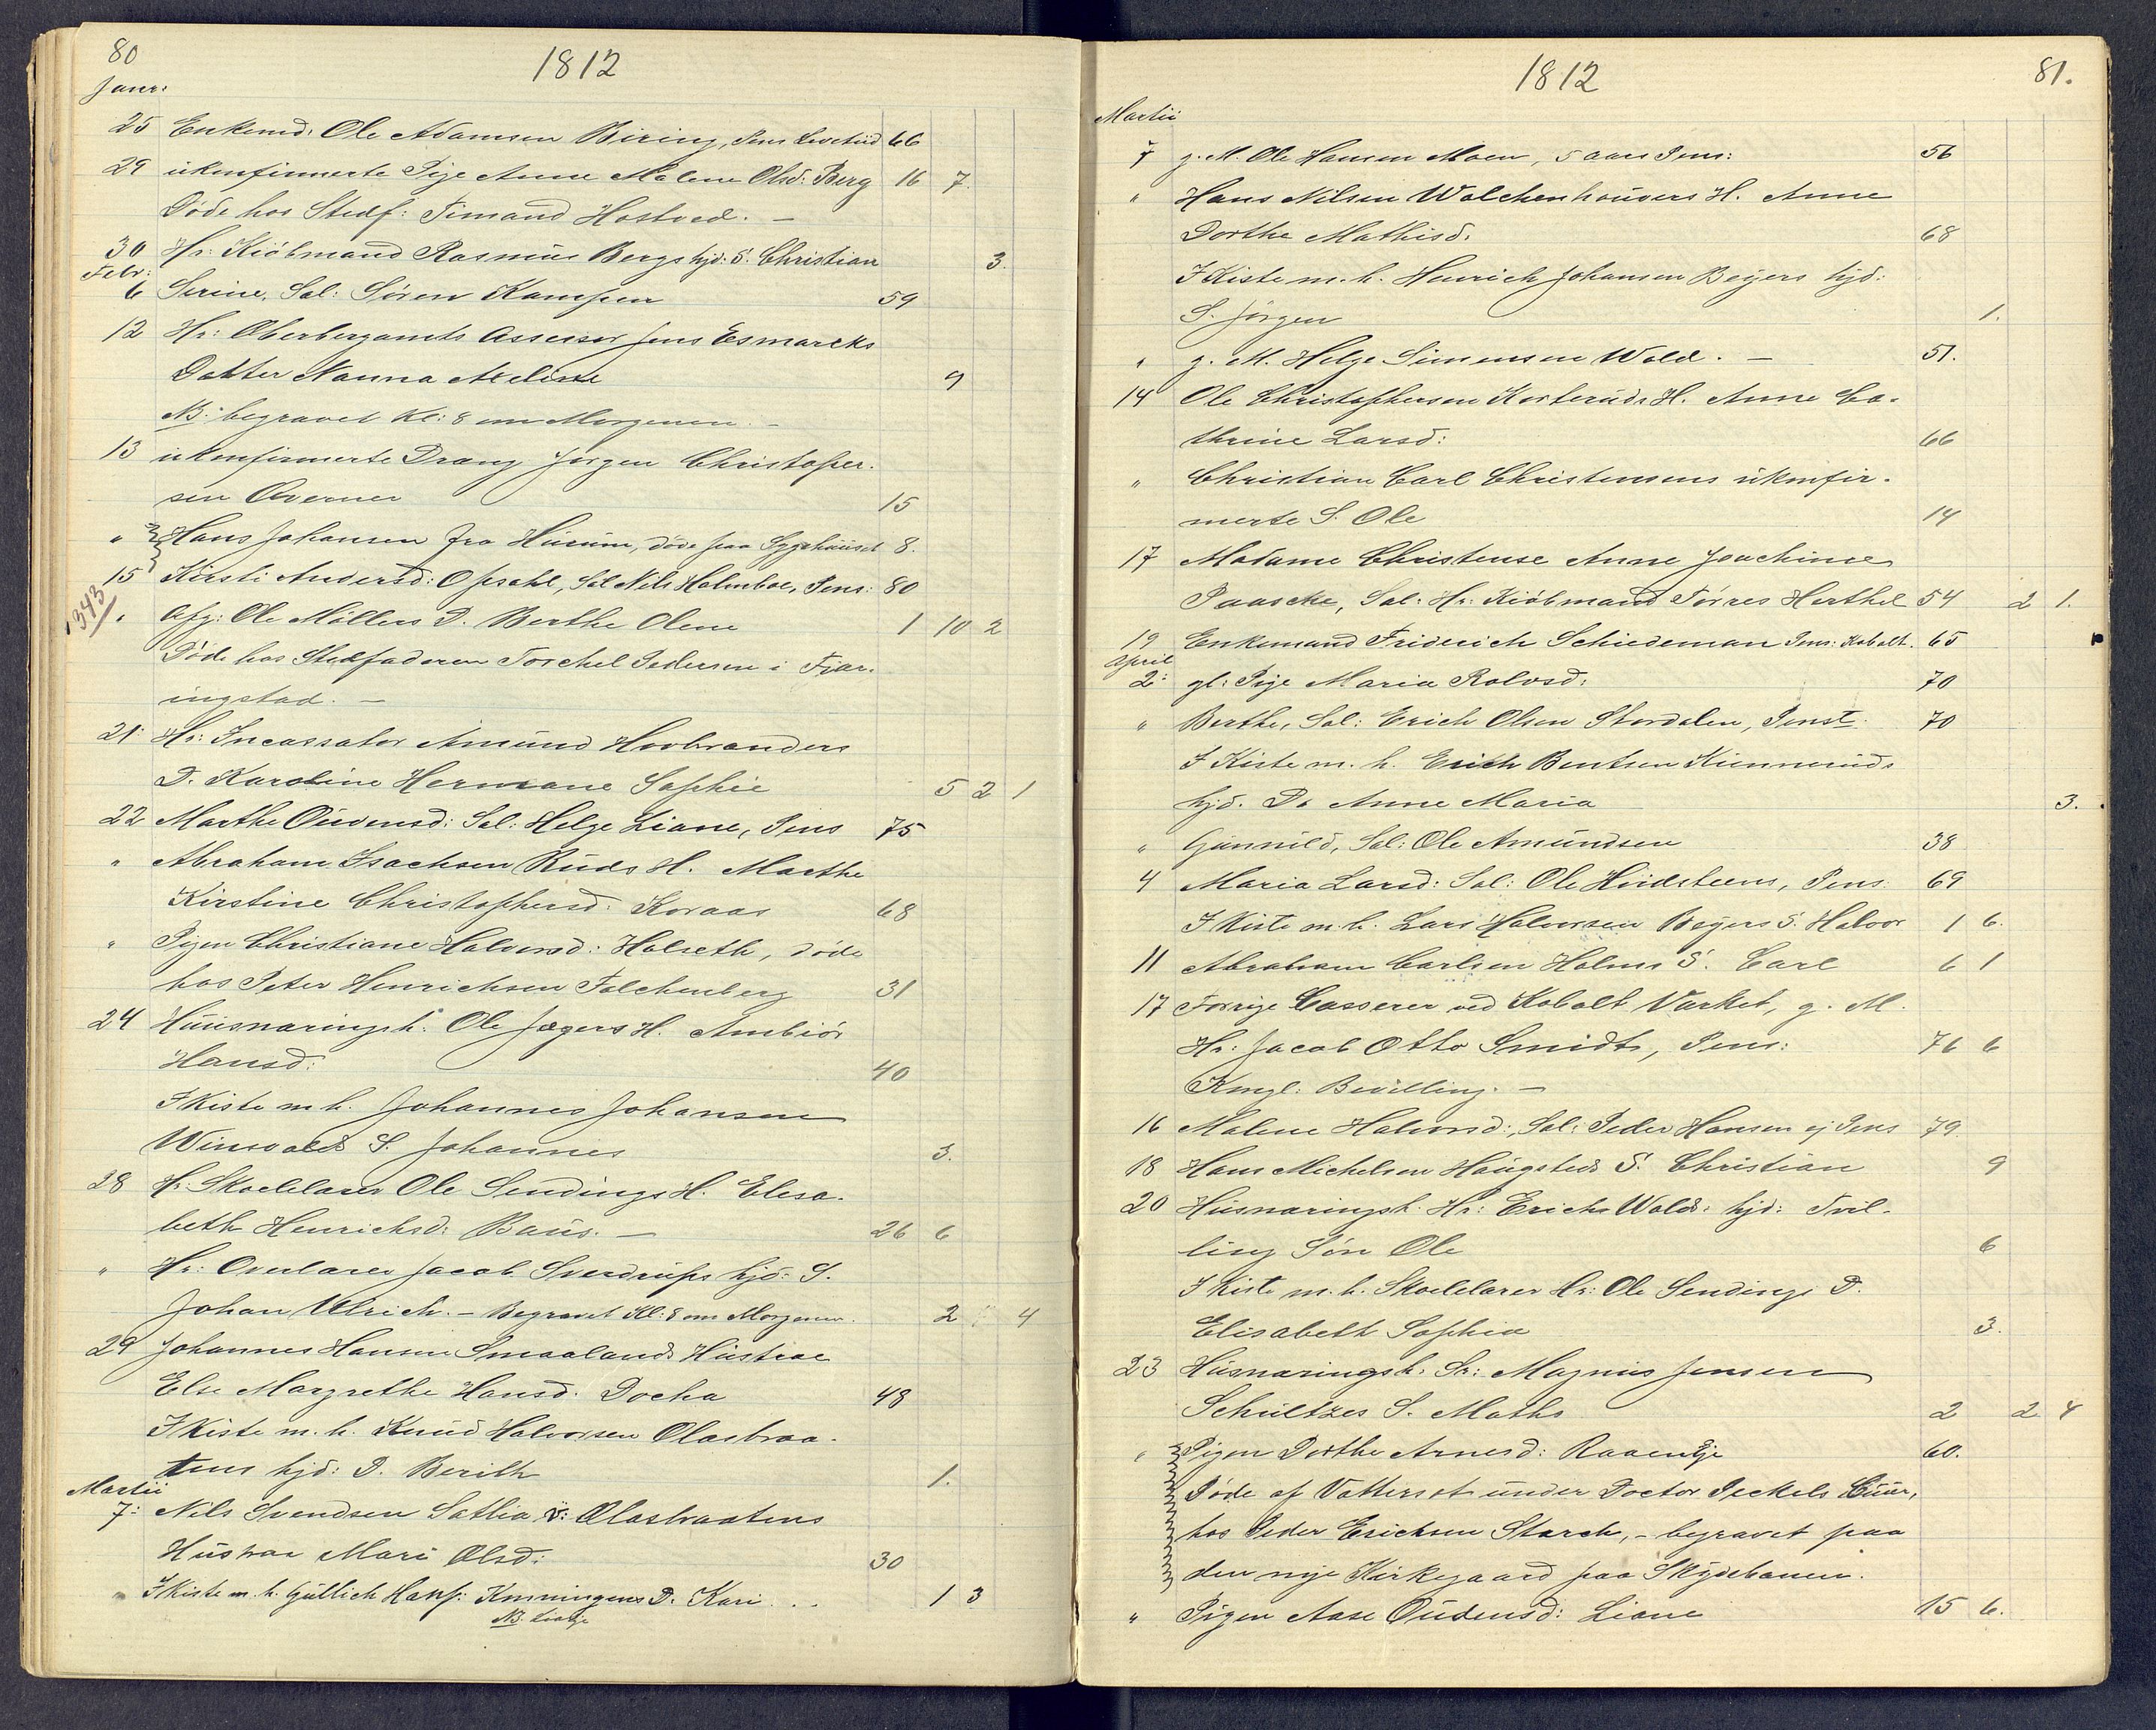 80
1812
Janr:
25 Enkemd: Ole Adamsen Biring, Pens Levetiid 66
29 ukonfirmerte Pige Anne Malene Olsd: Berg 16 7.
Døde hos Stedf: Timand Hostved. —
30 Hr: Kiöbmand Rasmus Bergs hjd: S. Christian 3.
Febr:
6 Serine, Sal: Sören Kampen 59
12 Hr: Oberbergamts Assessor Jens Esmarcks
Dotter Nanna Meline 9
NB: begravet Kl: 8 om Morgenen. —
13 ukonfirmerte Dreng Jørgen Christopher.
sen Averner 15
" Hans Johansen fra Hurum, döde paa Sygehuuset 8.
15 Kirsti Andersd: Opsahl, Sal Nils Holmboe, Pens: 80
1343
" Afg: Ole Möllers D. Berthe Olene 1 10 2
Döde hos Stedfaderen Torchel Pedersen i Fjær.
ingstad. —
21 Hr: Incassator Amund Hovbranders
D. Karoline Hermane Sophie 5 2 1
22 Marthe Ouvensd: Sal: Helge Liane, Pens 75
" Abraham Isachsen Ruds H. Marthe
Kirstine Christophersd: Koraas 68
" Pigen Christiane Halvorsd: Holseth, döde
hos Peter Henrichsen Falchenberg 31
24 Huusnaringsh: Ole Jægers H. Ambiör
Hansd: 40
I Kiste m. h. Johannes Johansen
Winsvolds S. Johannes 3.
28 Hr. Skoelelærer Ole Sendings H. Elesa.
beth Henrichsd: Baüs. — 26 6
" Hr: Overlærer Jacob Sverdrups hjd: S.
Johan Ulrich. — Begravet Kl: 8 om Morgenen. 2 4
29 Johannes Hansen Smaalands Hustroe
Else Margrethe Hansd: Docka 48
I Kiste m. h. Knud Halvorsen Olasbraa-
tens hjd: D. Berith 1.
Martii
7: Nils Svendsen Satlia v: Olasbraatens
Hustroe Mari Olsd: 30
I Kiste m. h. Gullich Hansf: Kmningens D. Kari . . . 1 3
1812
81.
Martii
7 g. M. Ole Hansen Moen, 5 aars Pens: 56
" Hans Nilsen Walchenhouvers H. Anne
Dorthe Mathisd: 68
I Kiste m. h. Henrich Johansen Beyers hjd:
S. Jörgen 1.
" g. M. Helge Simensen Wold. — 51.
14 Ole Christophersen Korteruds H. Anne Ca-
thrine Larsd: 66
" Christian Carl Christensens ukonfir.
merte S. Ole 14
17 Madame Christense Anne Joachime
Paascke, Sal: Hr: Kiöbmand Törres Herthel 54 2 1.
19 Enkemand Friderich Schiedeman Pens: Kobolt. 65
April
2: gl: Pige Maria Rolvsd: 70
" Berthe, Sal: Erich Olsen Stordalen, Penst. 70
I Kiste m. h. Erich Bentsen Kiennerüds
hjd. D. Anne Maria 3.
" Gunnild, Sal: Ole Amundsen 38
4 Maria Larsd: Sal: Ole Hvidsteens, Pens 69
I Kiste m. h. Lars Halvorsen Beyers S. Halvor 1 6.
11 Abraham Carlsen Holms S. Carl 6 1
17 Forrige Casserer ved Kobolt Værket, g. M.
Hr: Jacob Otto Smidth, Pens: 76 6
Kongl: Bevilling. —
16 Malene Halvorsd:, Sal: Peder Hansen ej Pens 79.
18 Hans Michelsen Haugsteds S. Christian 9
20 Huusnaringsh: Hr: Erichs Wolds hjd: Tvil-
ling Sön Ole 6
I Kiste m. h. Skoelelærer Hr: Ole Sendings D.
Elisabeth Sophia 3.
23 Huusnaringsh: Sr: Magnus Jensen
Schultzes S. Maths 2 2 4
" Pigen Dorthe Arnesd: Raaen Eje 60.
Döde af Vattersot under Doctor Peckels Cuur,
hos Peder Erichsen Starch, — begravet paa
den nye Kirkegaard paa Skydebanen.
" Pigen Aase Oudensd: Liane 15 6.